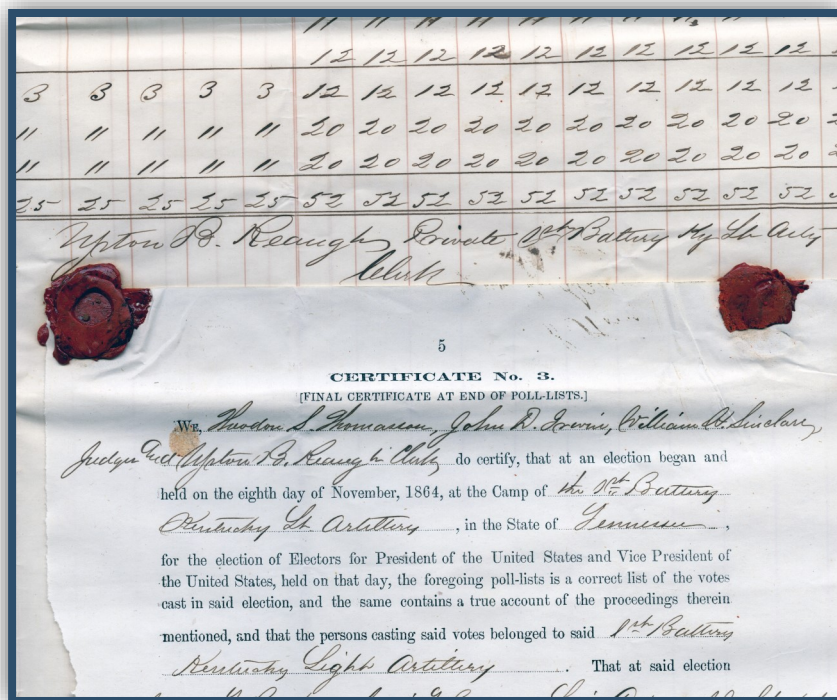 " " " " " " " "
12 12 12 12 12 12 12 12 12 12
3 3 3 3 3 12 12 12 12 12 12 12 12 12 12
" " " " " 20 20 20 20 20 20 20 20 20 20
" " " " " 20 20 20 20 20 20 20 20 20 20
25 25 25 25 25 52 52 52 52 52 52 52 52 52 52
Upton B. Reaugh Private 1st Battery Ky Lt Arty
Clerk
5
CERTIFICATE No. 3.
[FINAL CERTIFICATE AT END OF POLL-LISTS.]
WE, S. Thomasson, John D. Irwin, William H. Sinclair,
Judges and Upton B. Reaugh Clerk do certify, that at an election began and
held on the eighth day of November, 1864, at the Camp of the 1st Battery
Kentucky Lt Artillery, in the State of Tennessee,
for the election of Electors for President of the United States and Vice President of
the United States, held on that day, the foregoing poll-lists is a correct list of the votes
cast in said election, and the same contains a true account of the proceedings therein
mentioned, and that the persons casting said votes belonged to said 1st Battery
Kentucky Light Artillery. That at said election